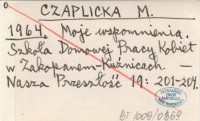 CZAPLICKA M.
1964. Moje wspomnienia.
Szkoła Domowej Pracy Kobiet
w Zakopanem-Kuźnicach —
Nasza Przeszłość 19: 201-204.